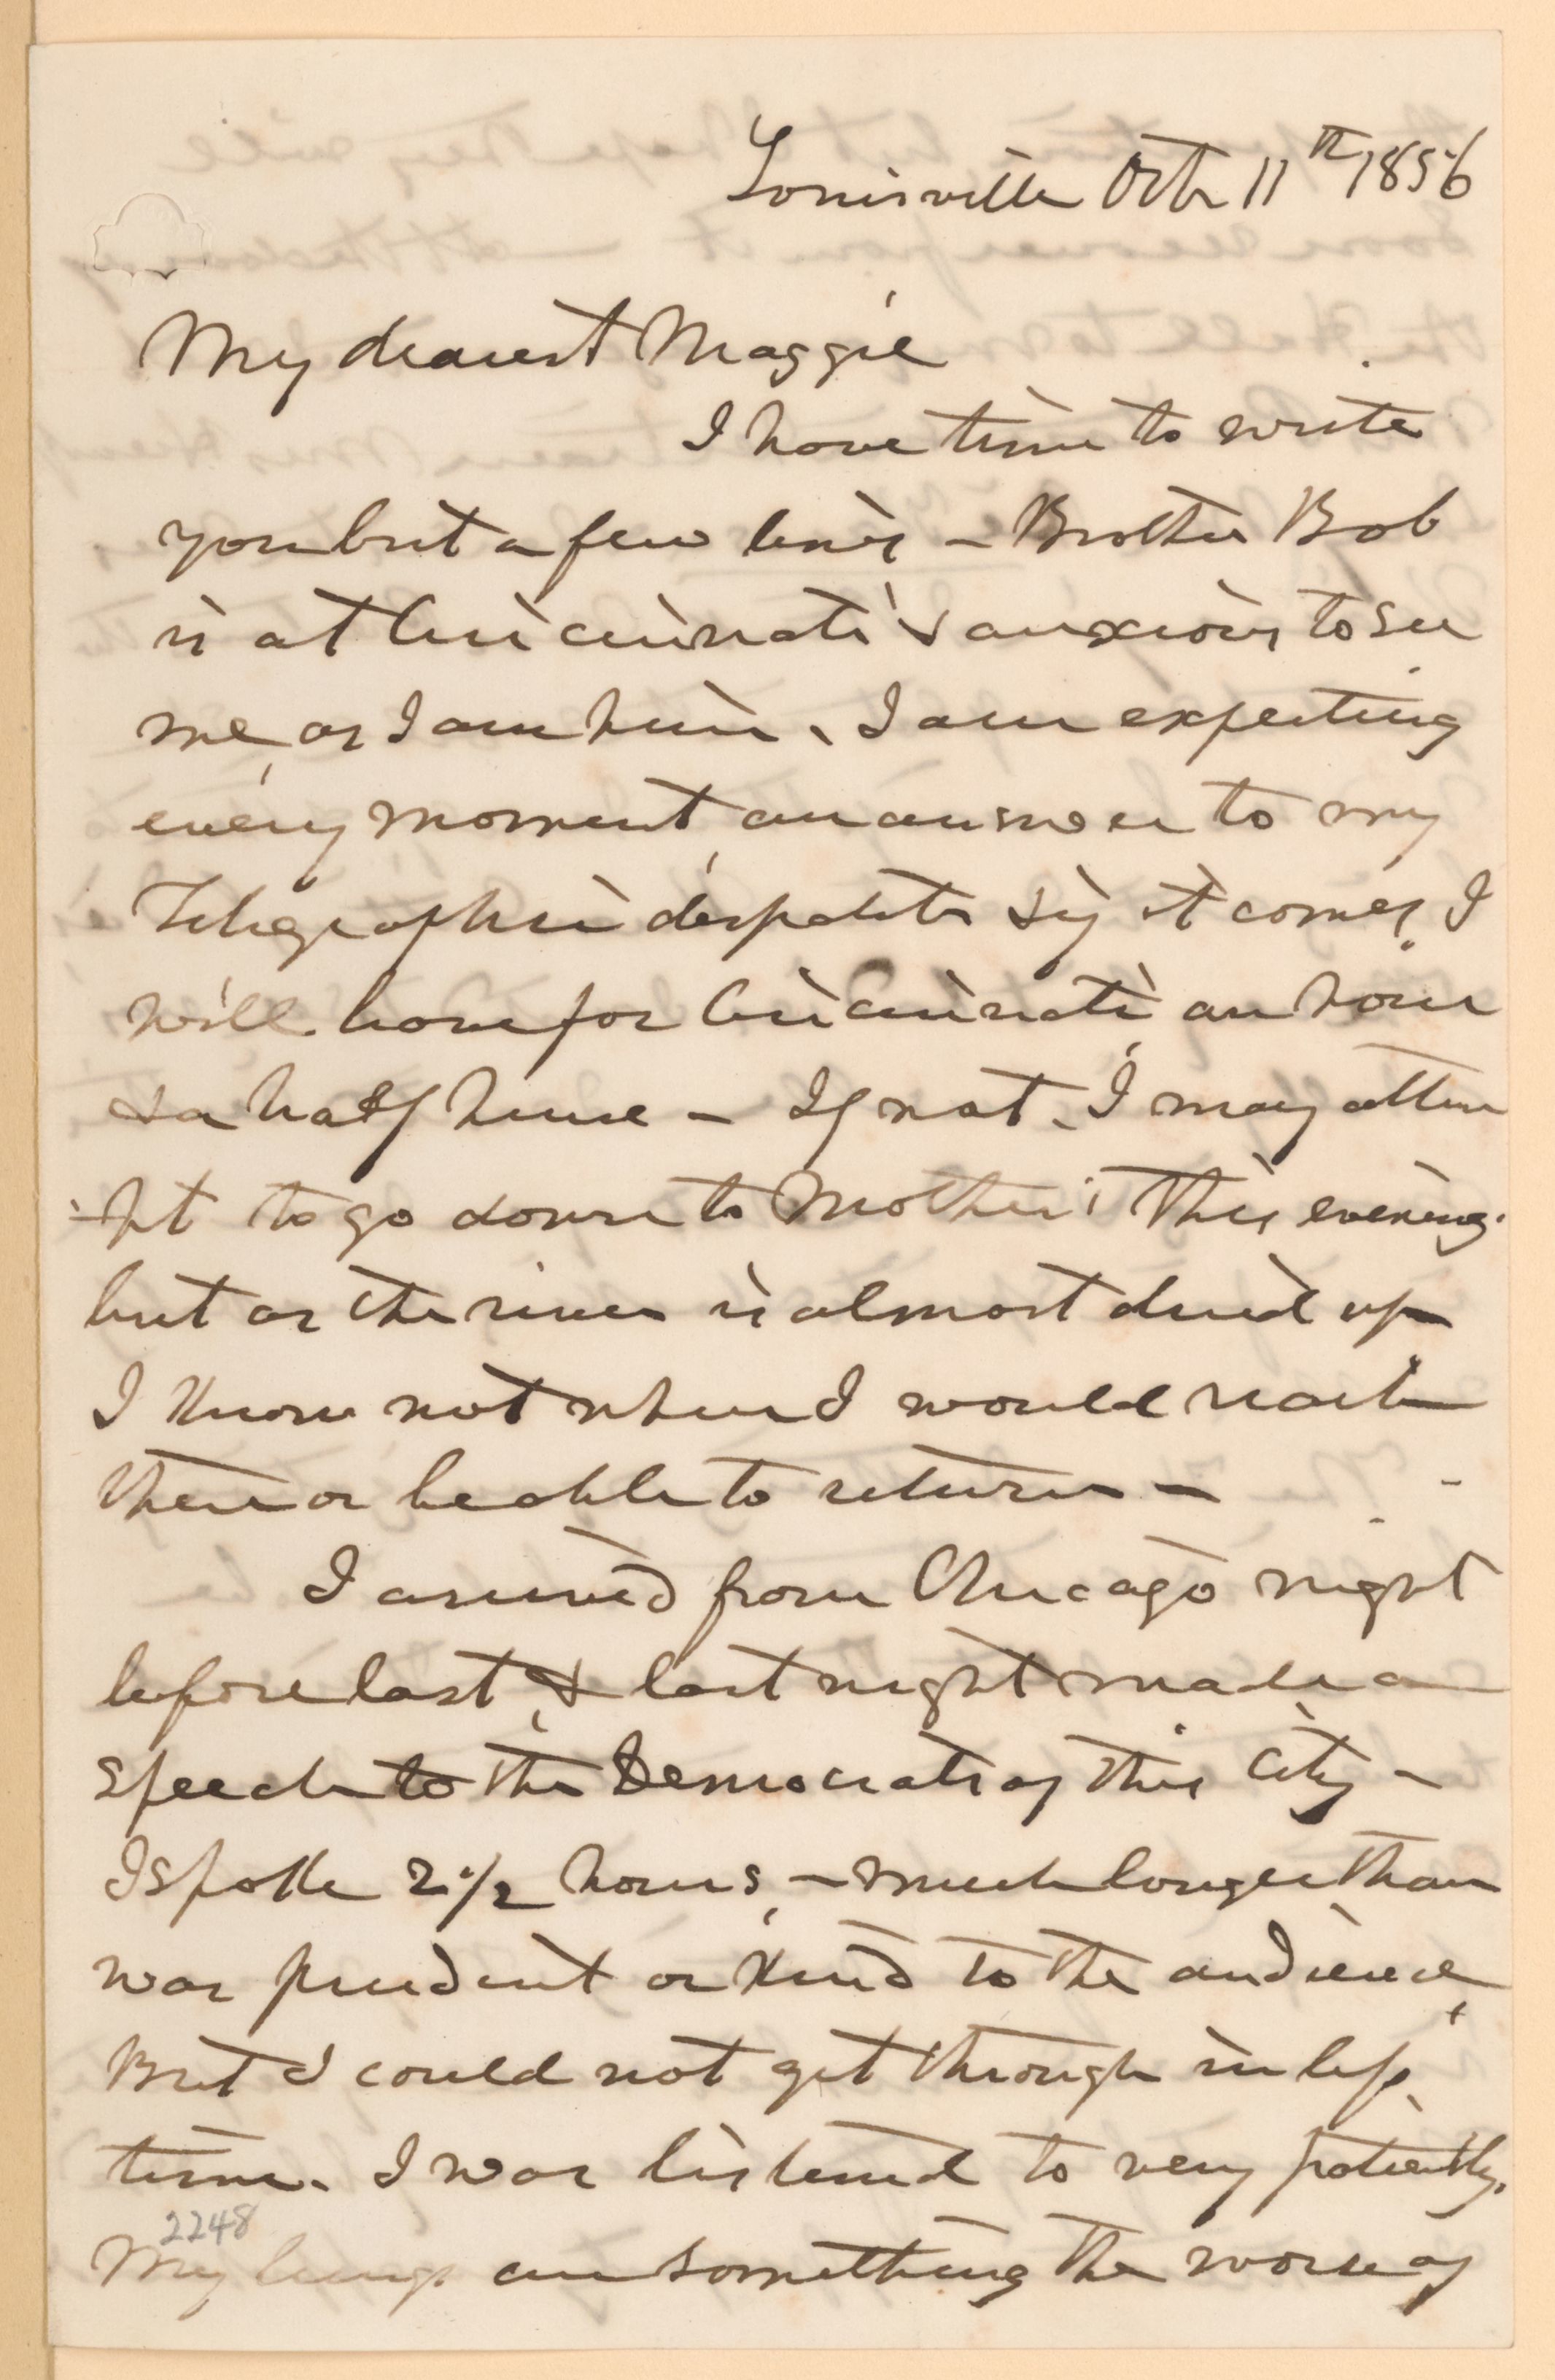 Louisville Octr 11th 1856
My dearest Maggie
I have time to write
you but a few lines - Brother Bob
is at Cincinnati & anxious to see
me, as I am him. I am expecting
every moment, an answer to my
Telegraphic despatch & if it comes, I
will leave for Cincinnati an hour
& a half hence - If not, I may attem
-pt to go down to Mother's this evening.
but as the river is almost dried up
I know not when I would reach
there or be able to return -
I arrived from Chicago night
before last, & last night made a
speech to the Democrats of this City -
I spoke 2 1/2 hours, - much longer than
was prudent or kind to the audience,
But I could not get through in less
time. I was listened to very patiently.
2248
My lungs are something the worse of